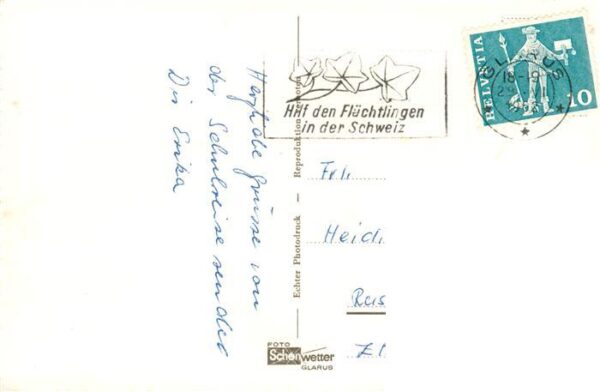 Herzliche Grüsse von
der Schulreise sendet
Dir Erika
Echter Photodruck — Reproduktion verboten
FOTO
Schönwetter
GLARUS
Hilf den Flüchtlingen
in der Schweiz
HELVETIA
10
GLARUS
18-19
Frl.
Heidi